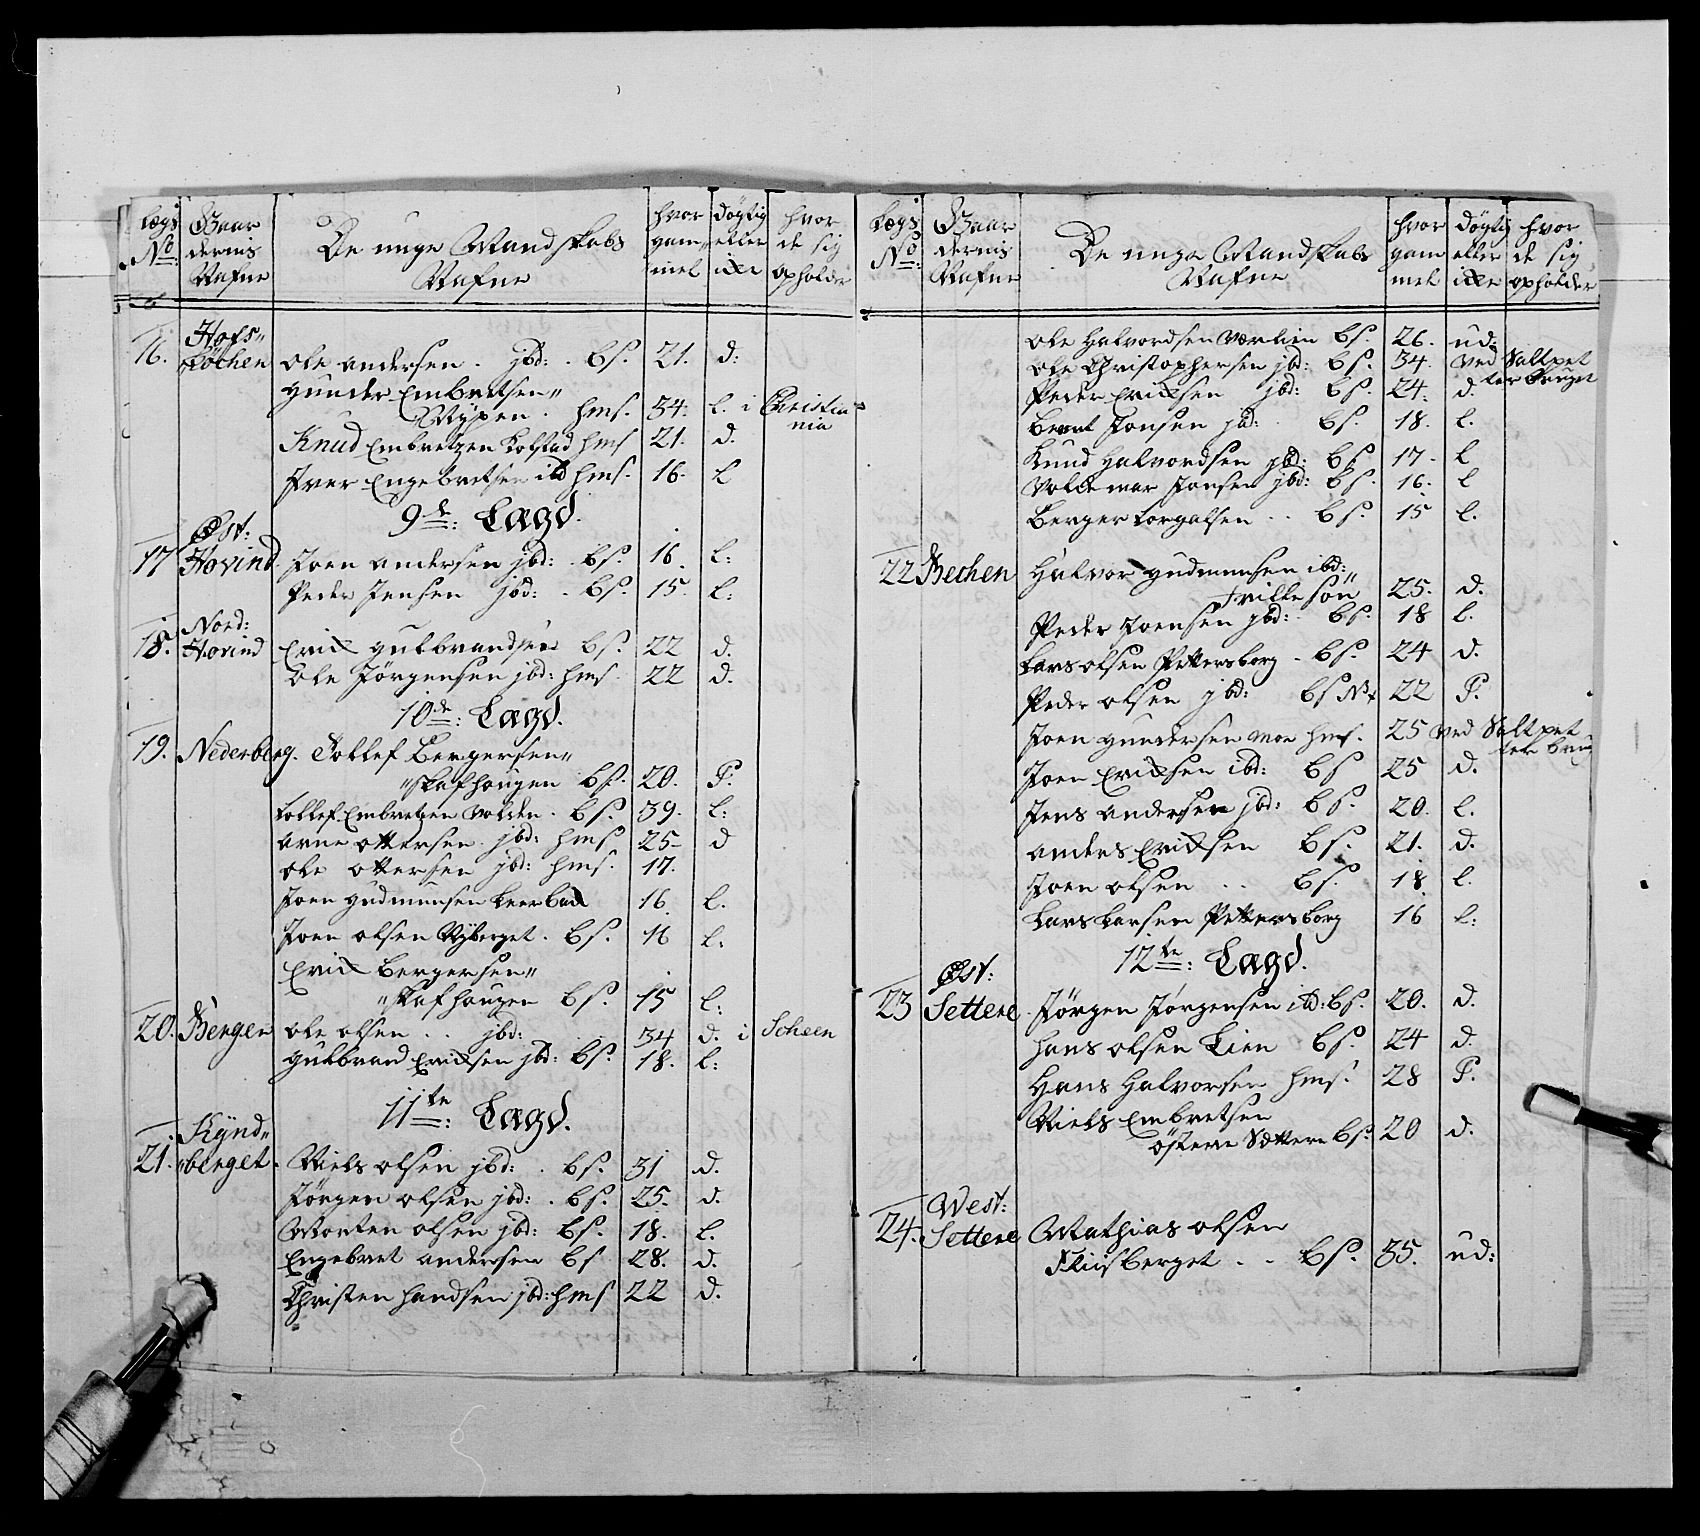 Lægs No: Gaar dernis Nafne De unge Mandskabs Nafne hvor gam mel døgtig eller ikke hvor de sig opholder
16. Hofs„ løchen Ole andersen . jbd: . bs. 21. d:
gunder Embretsen„
Nÿpen . hms. 34. l. i Christia nia
Knud Embretzen Kolstad hms 21. d.
Iver Engebretsen ibd hms. 16. l
9de: Lægd.
17 Øst: Hovind. Joen andersen jbd: . bs. 16. l:
Peder Jensen jbd: . bs. 15. l:
18. Nord: Hovind Erick gulbrandsen bs. 22 d.
Ole Jörgensen jbd: hms. 22 d.
10de: Lægd.
19. Nederberg. Tollef Bergersen„
„skafhougen bs. 20. P.
tollef Embretzen Volden . bs. 39. l:
arne ottersen . jbd: hms 25 d
ole ottersen jbd: hms. 17.
Joen gudmunsen Leerbæk 16. l.
Joen olsen Nÿberget . bs. 16 l:
Erick bergersen„
„skafhougen bs. 15 l:
20. Bergen ole olsen . . jbd: 34 d. i Scheen
gulbrand Ericksen jbd: bs. 18. l:
11te: Lægd.
21. Kÿnd„ berget. Niels olsen jbd: . bs. 31 d.
Jörgen olsen jbd: . bs. 25. d.
Morten olsen jbd: bs. 18. l.
Engebret andersen bs 28. d.
Christen handsen jbd: hms 22 d.
Lægs No: Gaar dernis Nafne De unge Mandskabs Nafne hvor gam mel døgtig eller ikke hvor de sig opholder
ole halvordsen Værlien bs. 26. ud:
ole Christophersen jbd: bs. 34. ved Saltpet ter bruget
Peder Ericksen jbd: bs. 24. d.
bernt Jonsen jbd: bs. 18. l.
Knud halvordsen jbd: bs 17. l
Voldemar Jonsen jbd: bs. 16. l
Berger torgalsen . . bs. 15 l.
22 Bechen halvor gudmunsen ibd:„
trille søn 25. d.
Peder Joensen jbd: . bs. 18 l.
Lars olsen Pettersborg . bs. 24 d.
Peder olsen jbd: bs 22 P.
Joen gundersen moe hms. 25 ved Saltpet ter brug
Joen Ericksen ibd: bs 25 d.
Jens andersen jbd: bs. 20. l.
anders Ericksen bs. 21. d.
Joen olsen . . bs. 18. l.
Lars Larsen Pettersborg 16 l:
12te: Lægd.
23 Øst: Settere. Jörgen Jörgensen ibd: bs. 20. d.
hans olsen Lien bs. 24 d.
hans halvorsen hms. 28 P.
Niels Embretsen
östere Sættere bs. 20 d.
24. West: Settere Mathias olsen
Fliisberget . . bs. 35. ud: